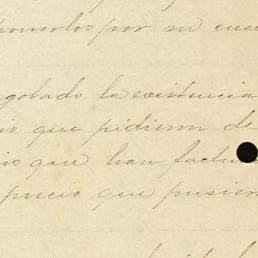 ponerlos por su cuen
gotado la existencia
io que pidieron de
is que han factu
precio que pusien